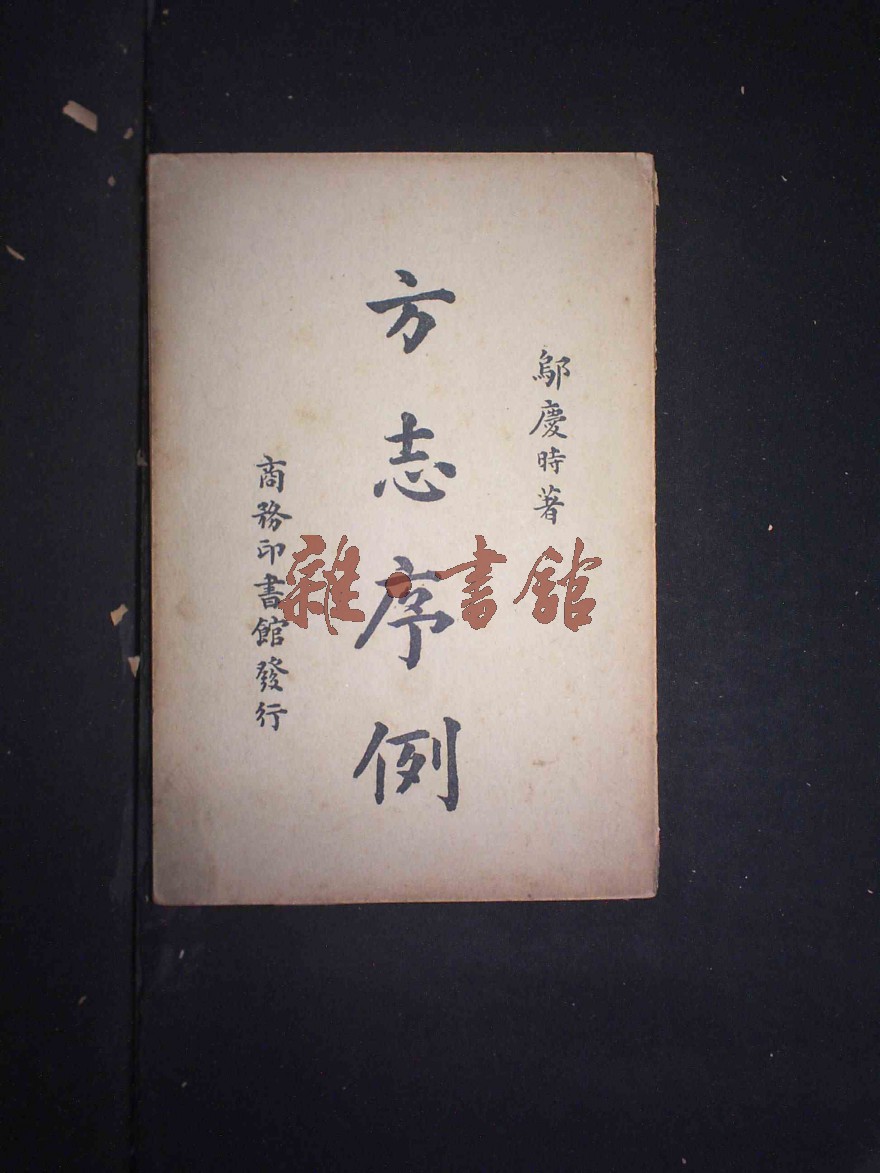 鄔慶時著
方志序例
商務印書館發行
雜·書館